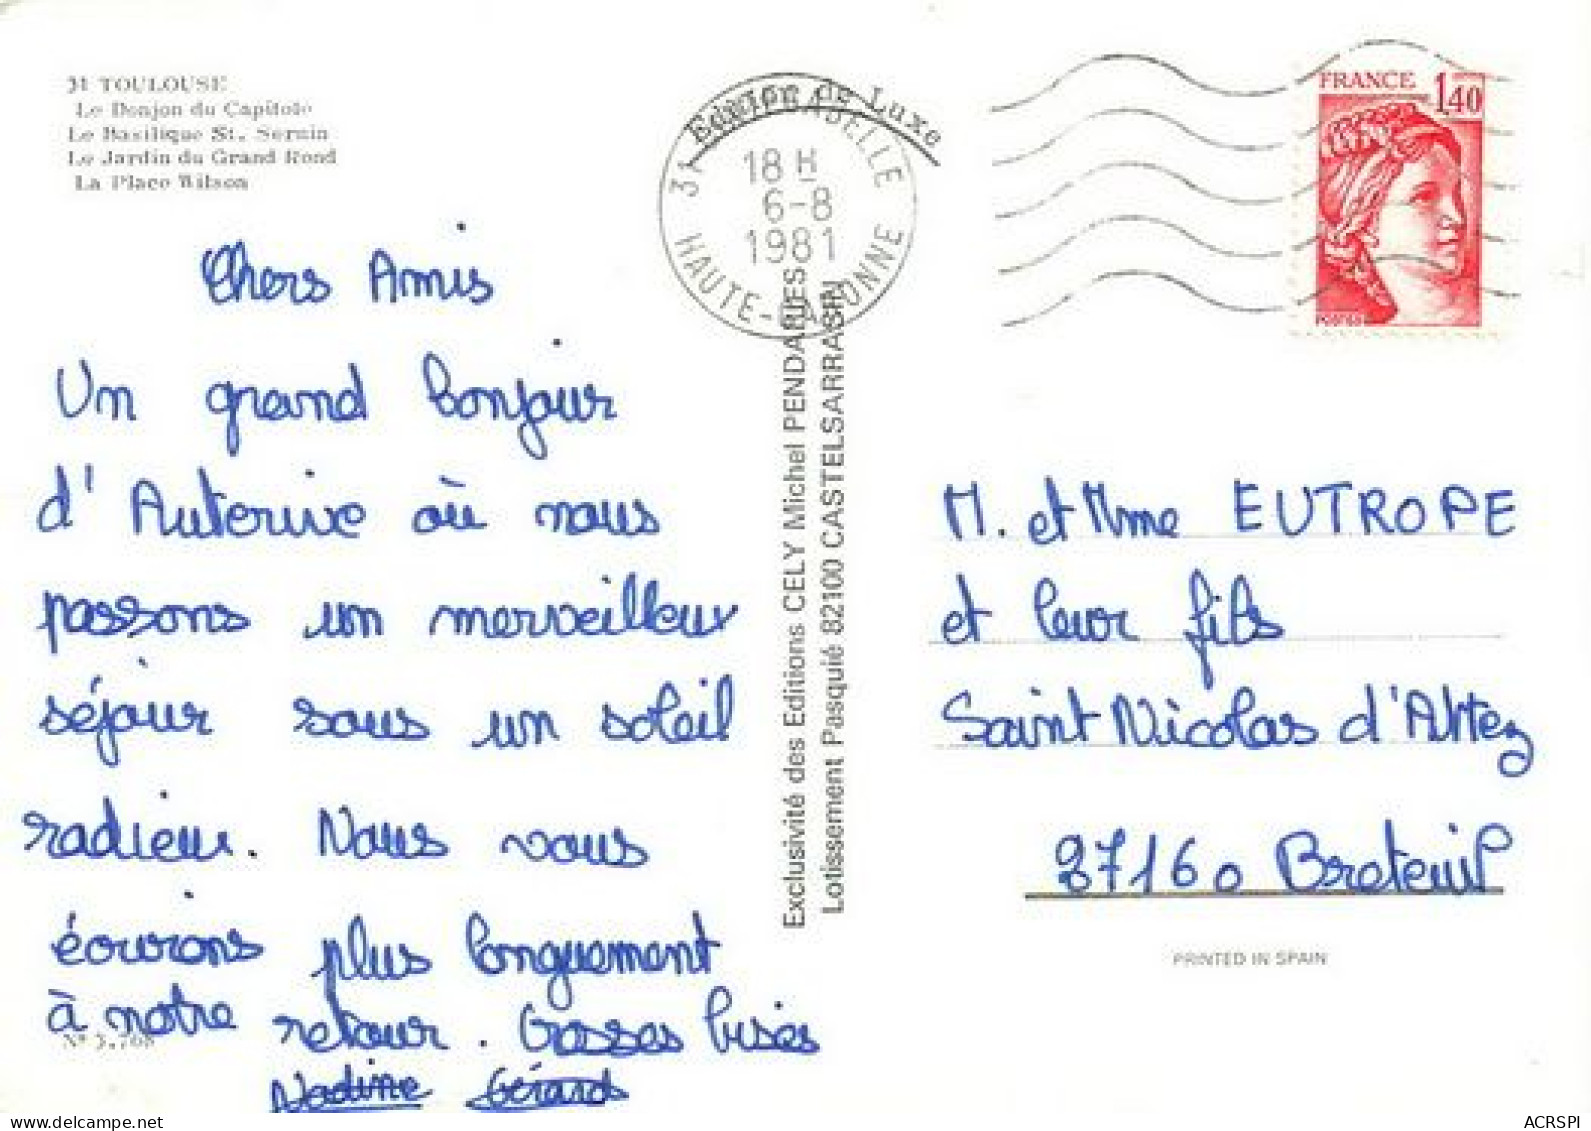 31 TOULOUSE
Le Donjon du Capitole
Le Basilique St. Sernin
Le Jardin du Grand Rond
La Place Wilson
Edition de Luxe
18 H
6-8
1981
HAUTE-GARONNE
FRANCE 1,40
POSTES
Chers Amis
Un grand bonjour
d'Auterive où nous
passons un merveilleux
séjour sous un soleil
radieux. Nous vous
écrirons plus longuement
à notre retour. Grosses bises
Nadine Gérard
N° 3.768
Exclusivité des Editions CELY Michel PENDARIES
Lotissement Pasquié 82100 CASTELSARRASIN
M. et Mme EUTROPE
et leur fils
Saint Nicolas d'Attez
27160 Breteuil
PRINTED IN SPAIN
ACRSPI